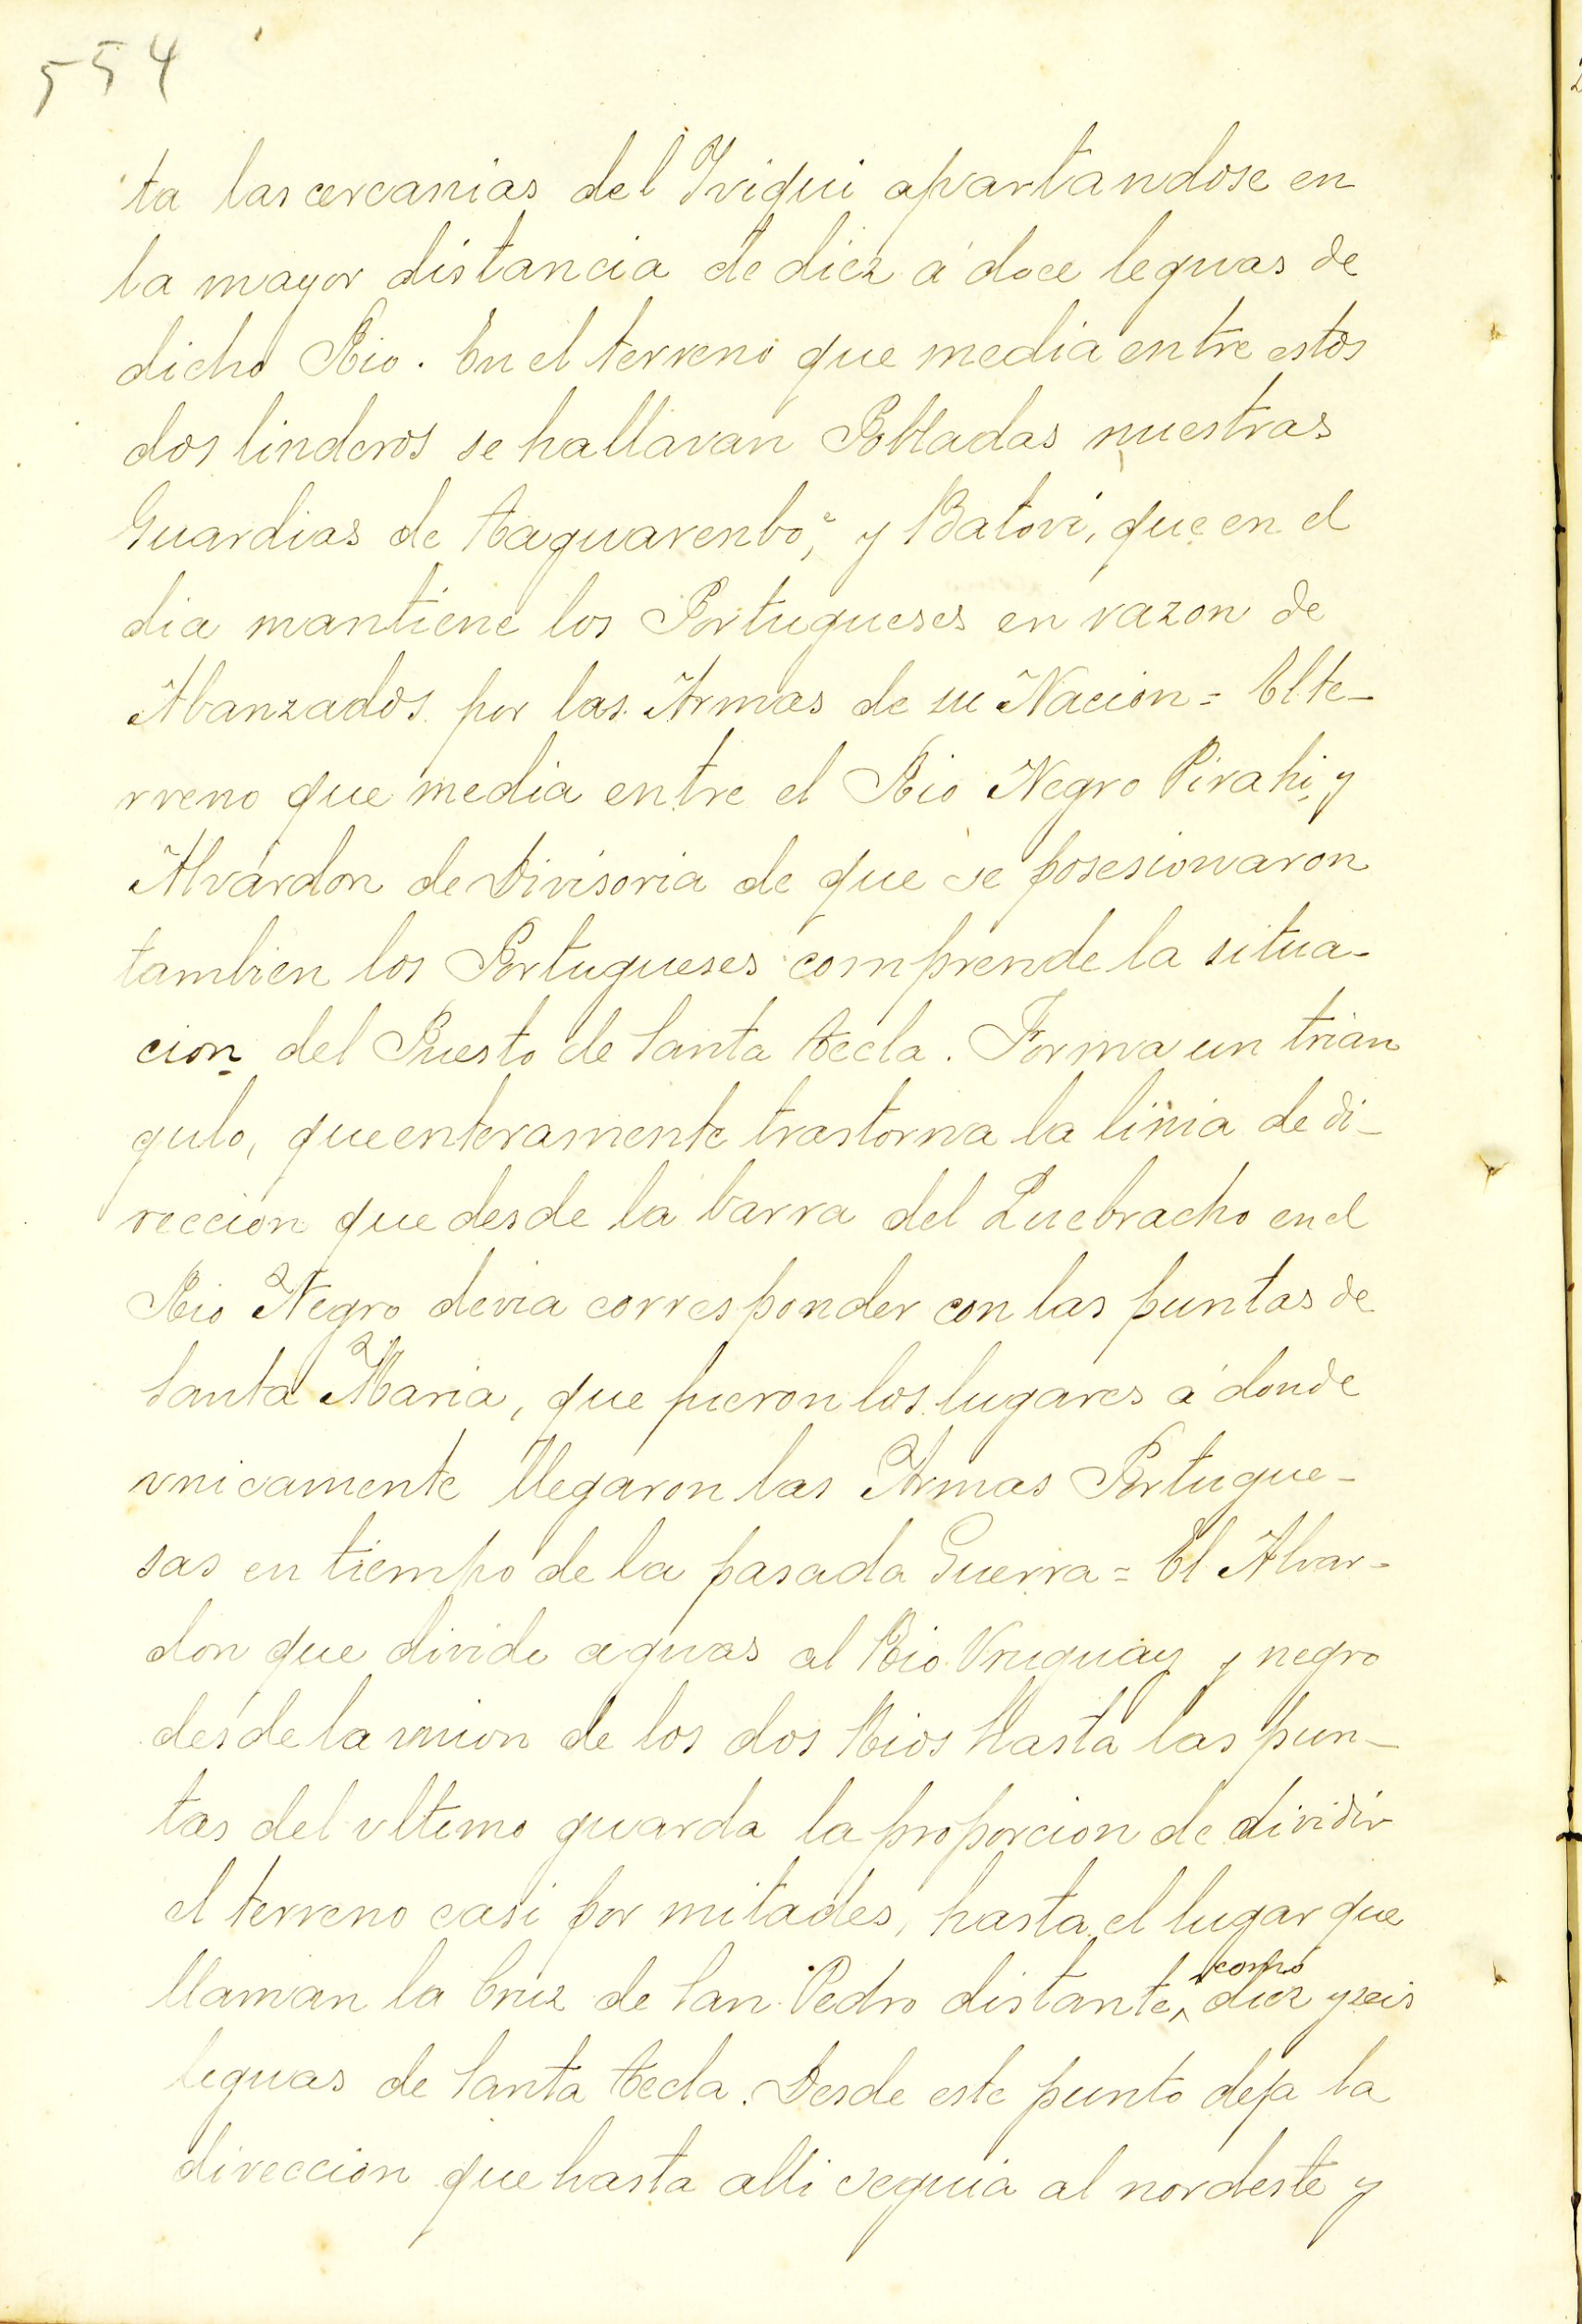 554
ta las cercanias del Yviqui apartandose en
la mayor distancia de diez á doce leguas de
dicho Rio. En el terreno que media entre estos
dos linderos se hallavan Pobladas nuestras
Guardias de Taquarenbó, y Batovi, que en el
dia mantiene los Portugueses en razon de
Abanzados por las Armas de su Nacion = El te-
rreno que media entre el Rio Negro Pirahi, y
Alvardon de Divisoria de que se posesionaron
tambien los Portugueses comprende la situa-
cion del Puesto de Santa Tecla. Forma un trian
gulo, que enteramente trastorna la linia de di-
reccion que desde la barra del Quebracho en el
Rio Negro devia corresponder con las puntas de
Santa Maria, que fueron los lugares á donde
vnicamente llegaron las Armas Portugue-
sas en tiempo de la pasada Guerra = El Alvar-
don que divide aguas al Rio Vruguay y negro
desde la vnion de los dos Rios hasta las pun-
tas del vltimo guarda la proporcion de dividir
el terreno casi por mitades, hasta el lugar que
llaman la Cruz de San Pedro distante, como diez y seis
leguas de Santa Tecla. Desde este punto deja la
direccion que hasta alli seguia al nordeste y